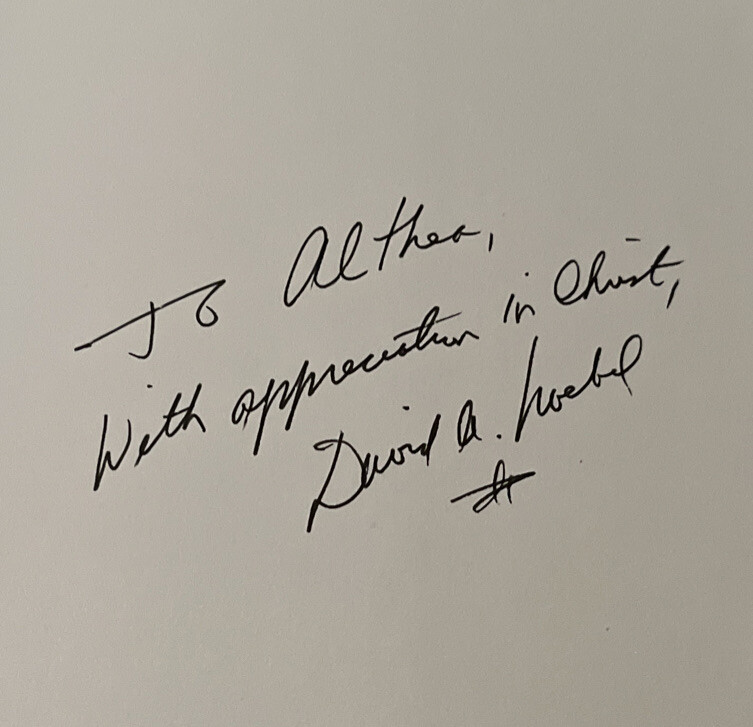 To Althea,
With appreciation in Christ,
David A. Noebel